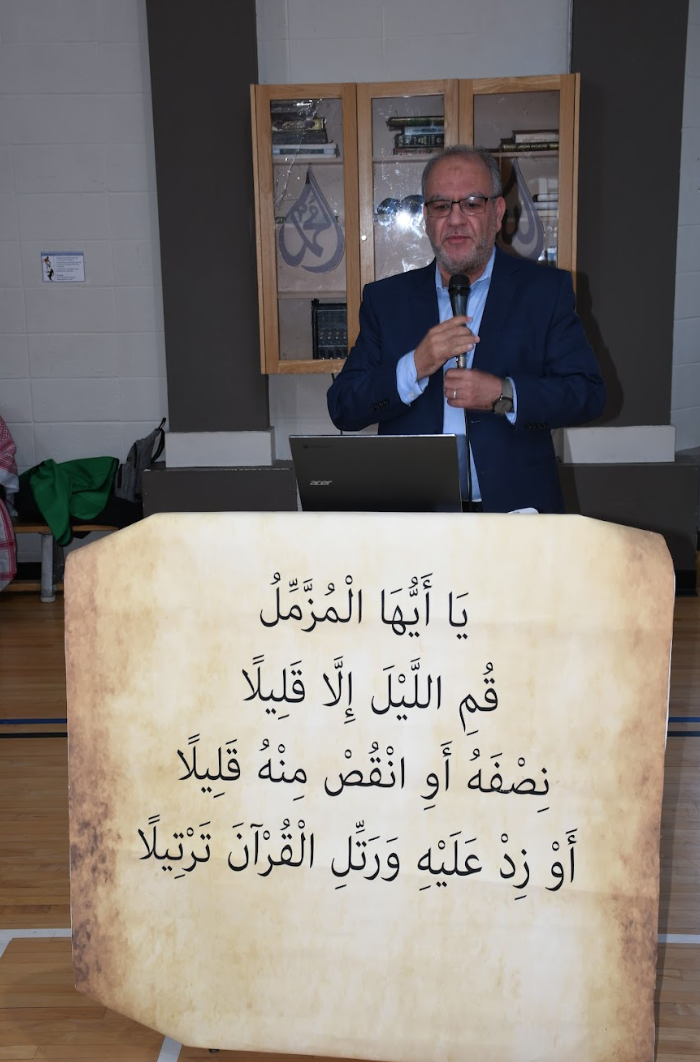 محمد
acer
يَا أَيُّهَا الْمُزَّمِّلُ
قُمِ اللَّيْلَ إِلَّا قَلِيلًا
نِصْفَهُ أَوِ انْقُصْ مِنْهُ قَلِيلًا
أَوْ زِدْ عَلَيْهِ وَرَتِّلِ الْقُرْآنَ تَرْتِيلًا